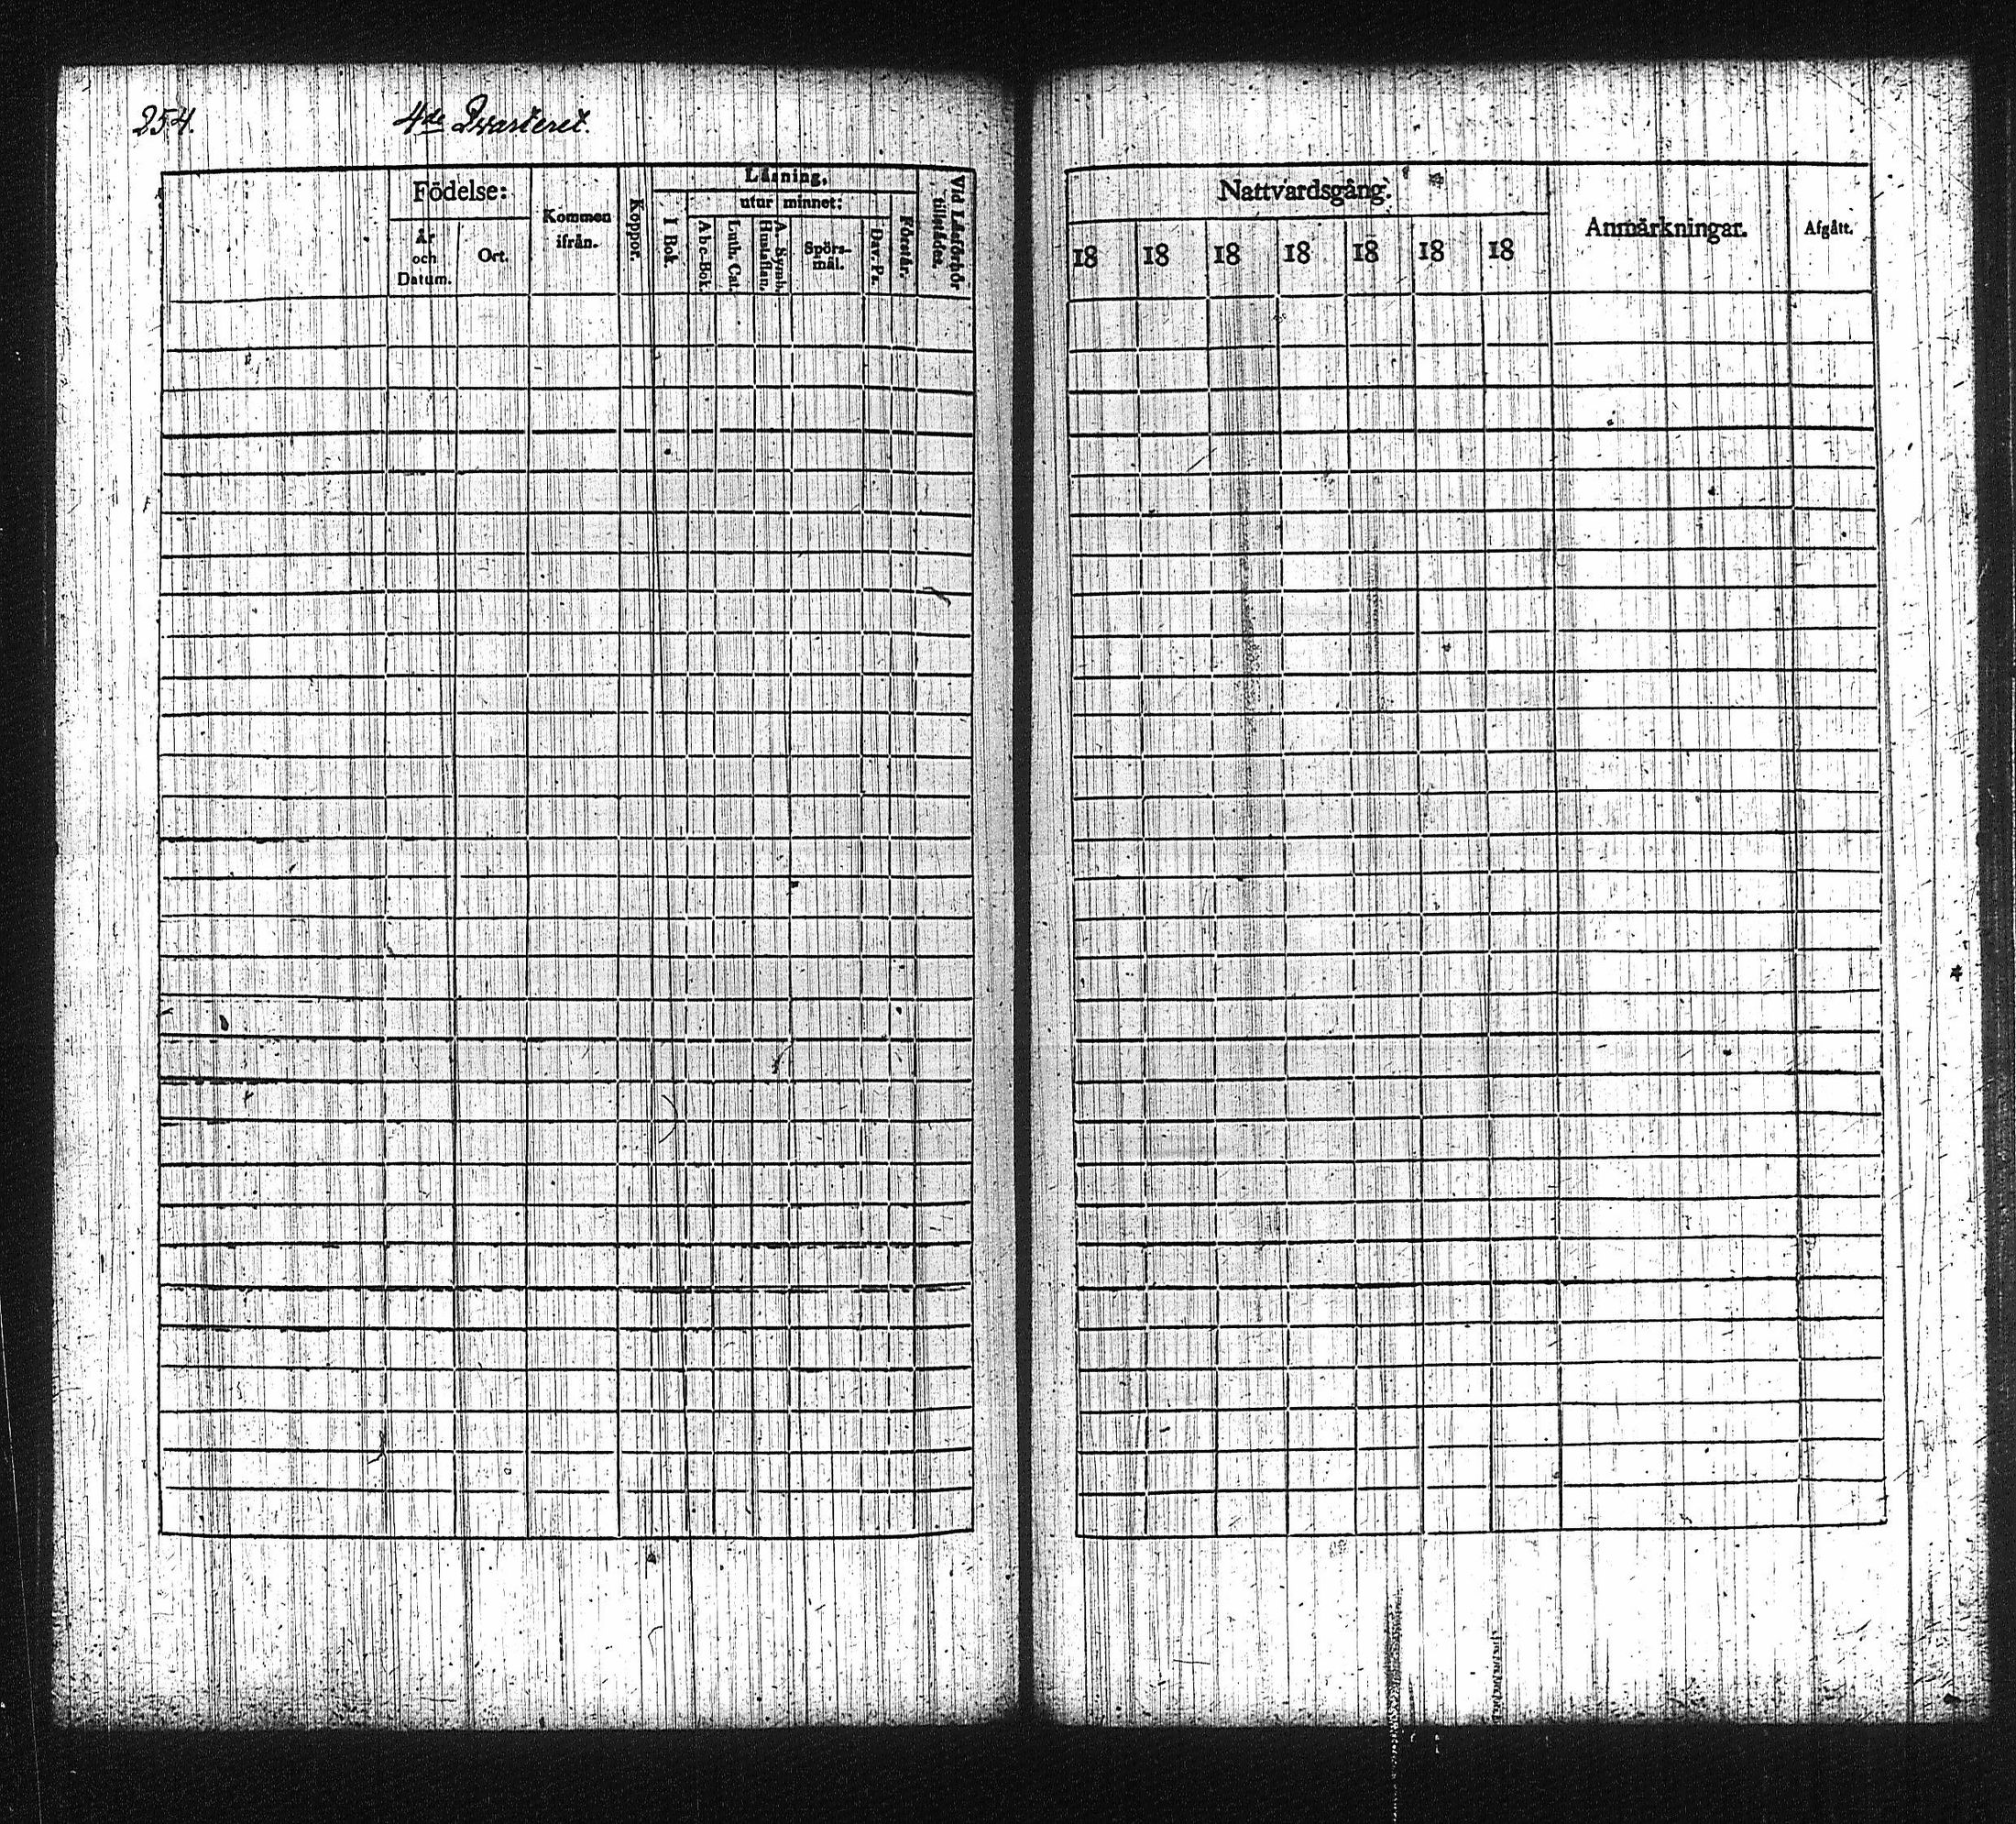 254.
4de Qvarteret.
Födelse:
År och Datum.
Ort.
Kommen ifrån.
Koppor.
Läsning,
I Bok.
utur minnet:
Abc-Bok.
Luth. Cat.
A. Symb. Hustaflan.
Spörsmål.
Dav. Ps.
Förstår.
Vid Läsförhör tillstädes.
Nattvardsgång.
18 18 18 18 18 18 18
Anmärkningar.
Afgått.